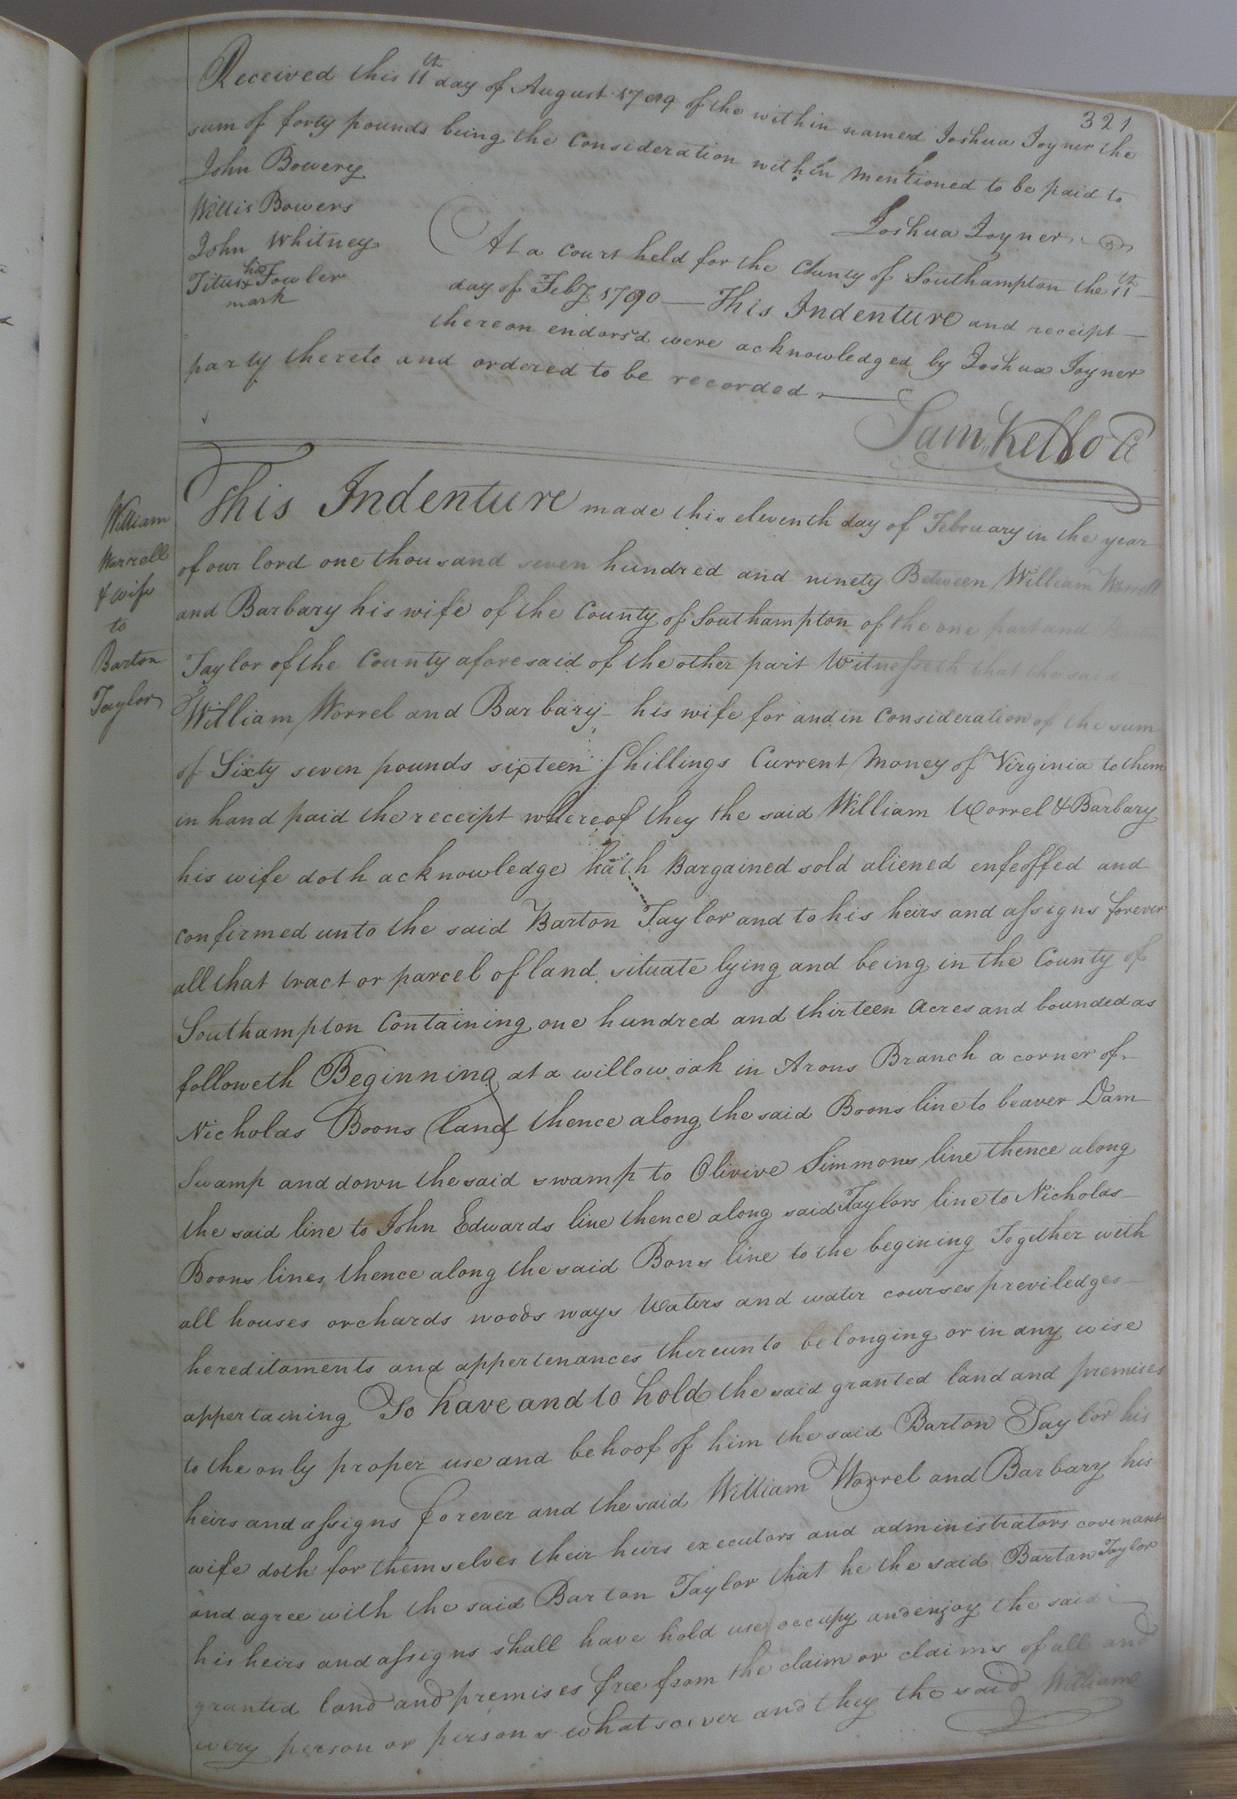 321
Received this 11th day of August 1789 of the within named Joshua Joyner the
sum of forty pounds being the Consideration within mentioned to be paid to
John Bowery
Willis Bowers
Joshua Joyner
John Whitney
Titus his Fowler
mark
At a Court held for the County of Southampton the 11th
day of Feby 1790 — This Indenture and receipt
thereon endorsd were acknowledged by Joshua Joyner
party thereto and ordered to be recorded
Sam Kello Cl
William
Worrell
& wife
to
Barton
Taylor
This Indenture made this eleventh day of February in the year
of our lord one thousand seven hundred and ninety Between William Worrell
and Barbary his wife of the County of Southampton of the one part and
Taylor of the County aforesaid of the other part Witnesseth that the said
William Worrel and Barbary his wife for and in Consideration of the sum
of Sixty seven pounds sixteen Shillings Current Money of Virginia to them
in hand paid the receipt whereof they the said William Worrel & Barbary
his wife doth acknowledge hath Bargained sold aliened enfeoffed and
confirmed unto the said Barton Taylor and to his heirs and assigns forever
all that tract or parcel of land situate lying and being in the County of
Southampton Containing one hundred and thirteen Acres and bounded as
followeth Beginning at a willow oak in Arons Branch a corner of
Nicholas Boons land thence along the said Boons line to beaver Dam
Swamp and down the said swamp to Olivive Simmons line thence along
the said line to John Edwards line thence along said Taylors line to Nicholas
Boons lines thence along the said Bons line to the begining Together with
all houses orchards woods ways Waters and water courses previledges
hereditaments and appertenances thereunto belonging or in any wise
appertaining To have and to hold the said granted land and premises
to the only proper use and behoof of him the said Barton Taylor his
heirs and assigns forever and the said William Worrel and Barbary his
wife doth for themselves their heirs executors and administrators covenant
and agree with the said Barton Taylor that he the said Barton Taylor
his heirs and assigns shall have hold use occupy and enjoy the said
granted land and premises free from the claim or claims of all and
every person or persons whatsoever and they the said William